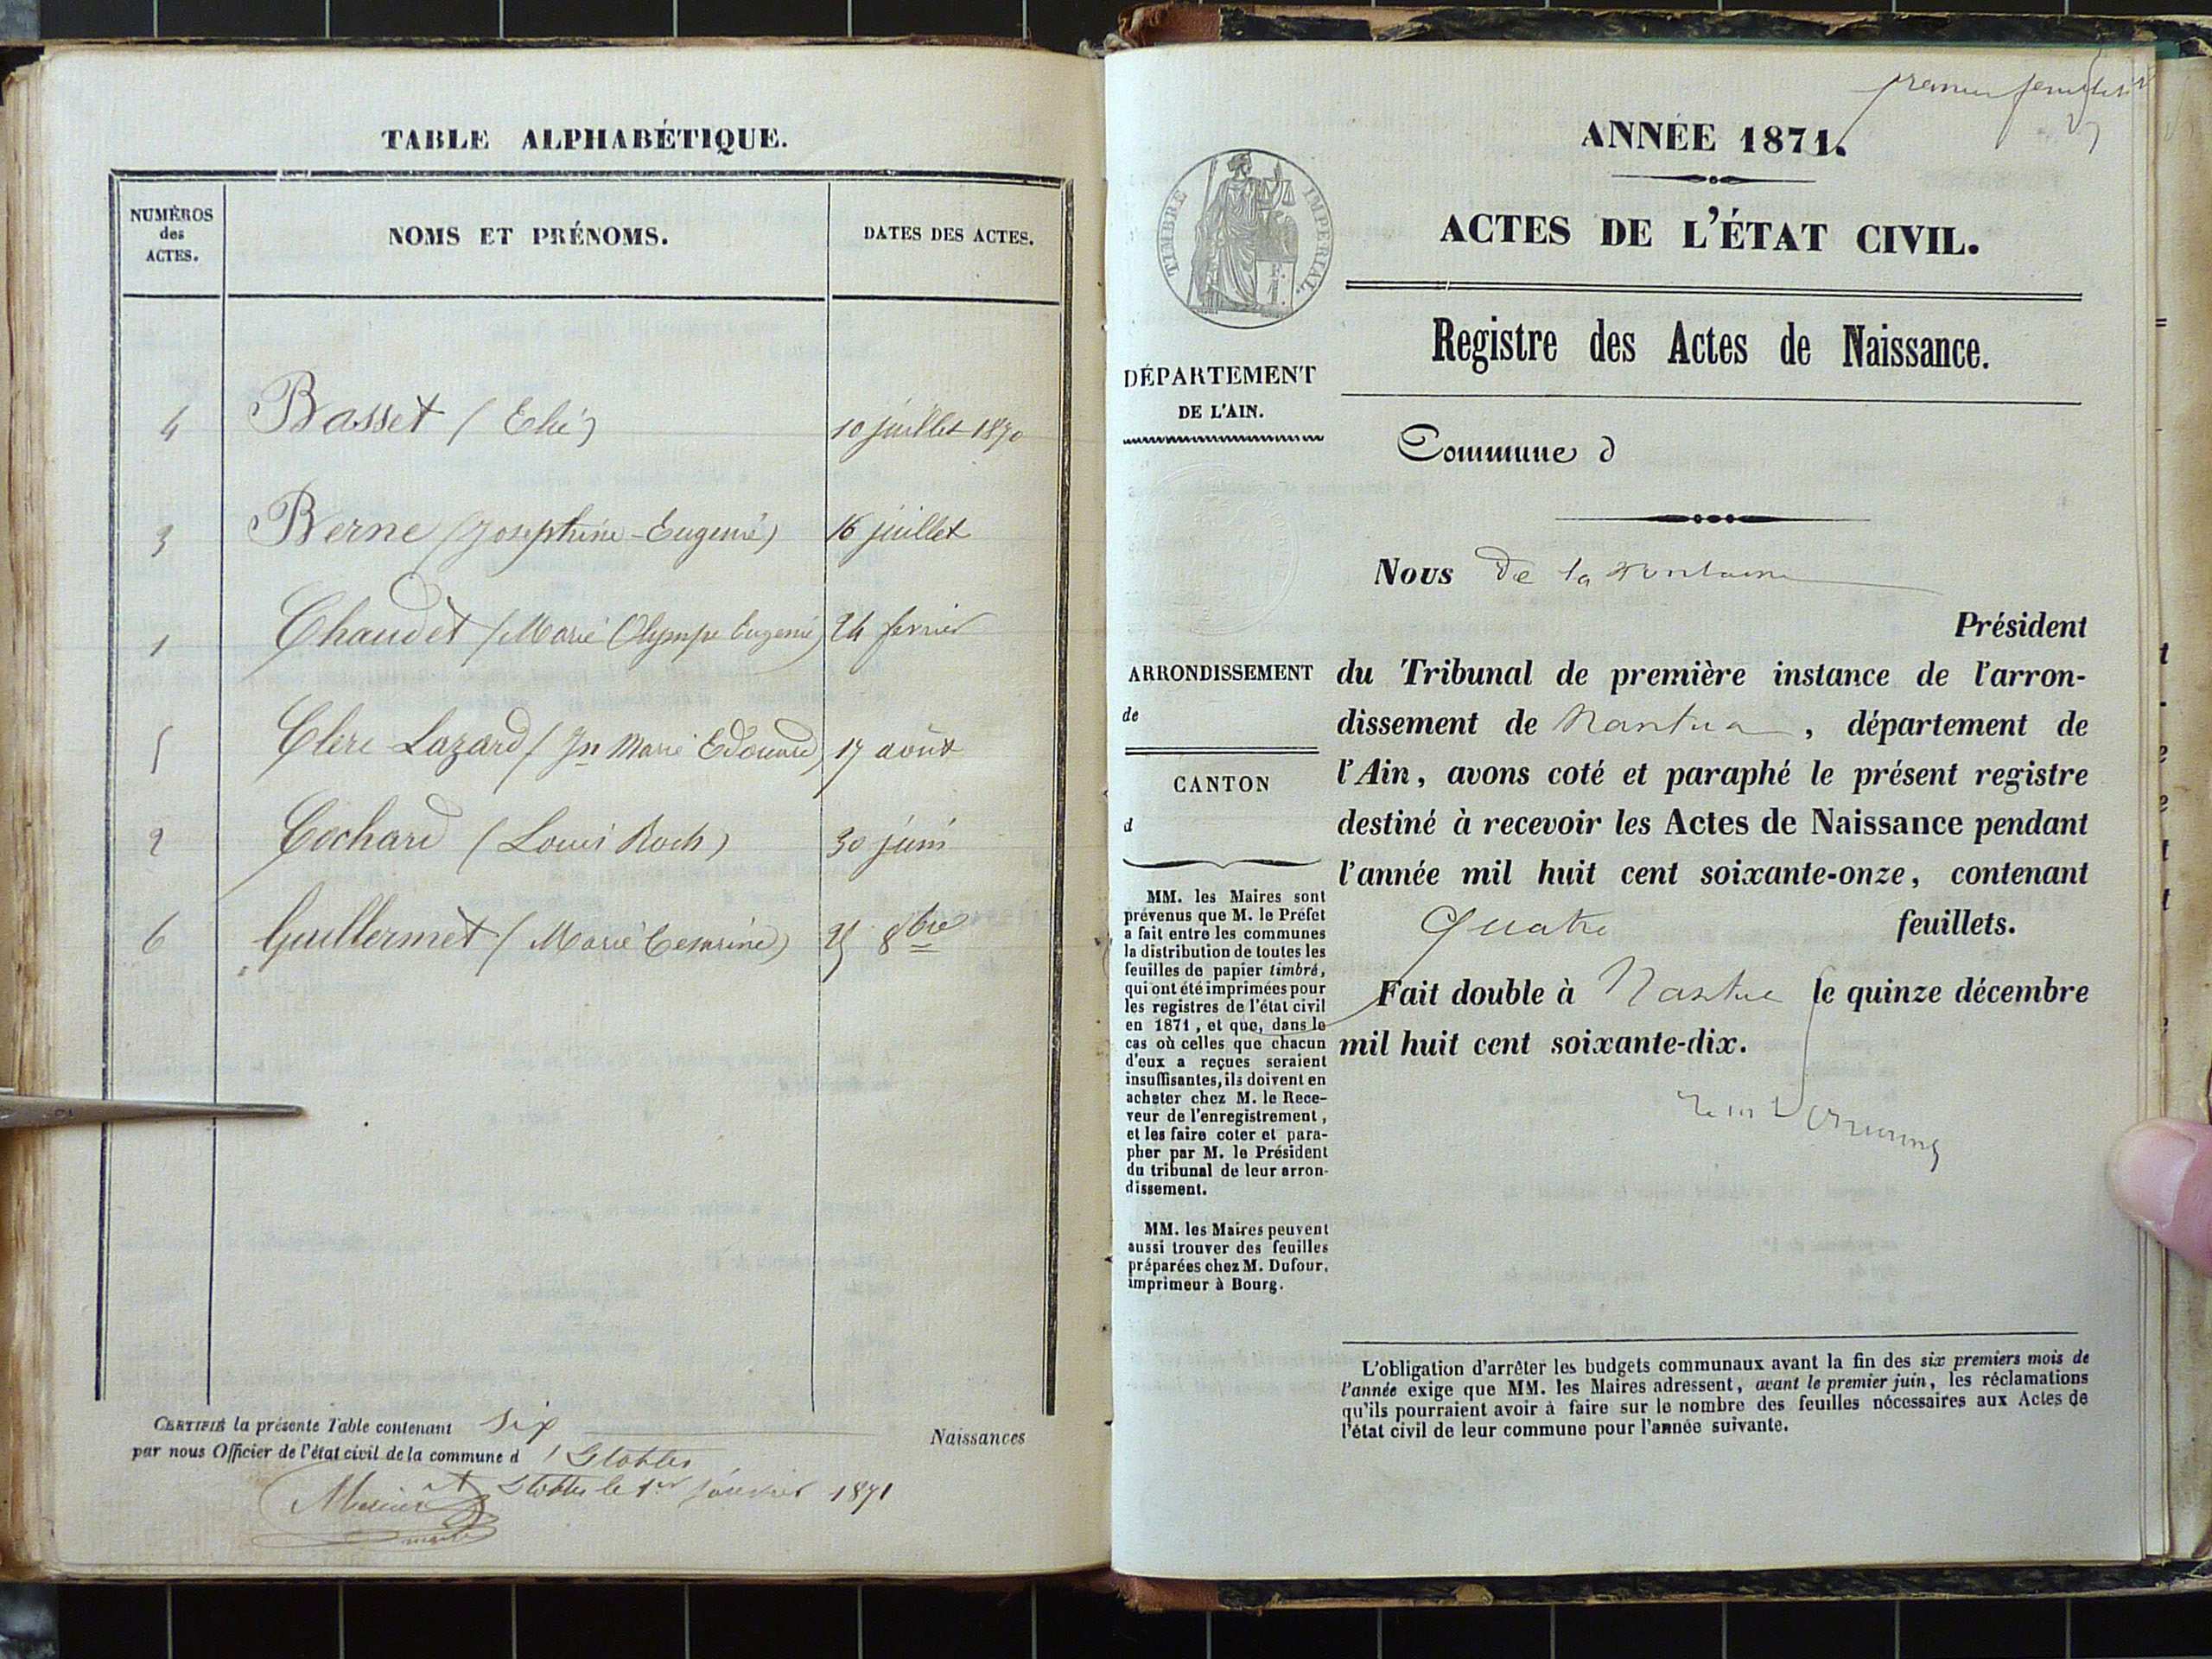 TABLE ALPHABÉTIQUE.
NUMÉROS
des
ACTES.
NOMS ET PRÉNOMS.
DATES DES ACTES.
4 Basset (Elie) 10 juillet 1870
3 Berne (Josephine-Eugenie) 16 juillet
1 Chaudet (Marie Olympe Eugenie) 24 fevrier
5 Clerc-Lazard (Jn Marie Edouard) 17 août
2 Cochard (Louis Roch) 30 juin
6 Guillermet (Marie Cesarine) 25 8bre
CERTIFIÉ la présente Table contenant Six Naissances
par nous Officier de l'état civil de la commune d'Etables
A Etables le 1er janvier 1871
maire
premier feuillet
ANNÉE 1871.
TIMBRE IMPERIAL.
ACTES DE L'ÉTAT CIVIL.
Registre des Actes de Naissance.
DÉPARTEMENT
DE L'AIN.
Commune d
Nous De la
Président
ARRONDISSEMENT
de
CANTON
d
du Tribunal de première instance de l'arron-
dissement de Nantua, département de
l'Ain, avons coté et paraphé le présent registre
destiné à recevoir les Actes de Naissance pendant
l'année mil huit cent soixante-onze, contenant
Quatre feuillets.
Fait double à Nantua le quinze décembre
mil huit cent soixante-dix.
MM. les Maires sont
prévenus que M. le Préfet
a fait entre les communes
la distribution de toutes les
feuilles de papier timbré,
qui ont été imprimées pour
les registres de l'état civil
en 1871, et que, dans le
cas où celles que chacun
d'eux a reçues seraient
insuffisantes, ils doivent en
acheter chez M. le Rece-
veur de l'enregistrement,
et les faire coter et para-
pher par M. le Président
du tribunal de leur arron-
dissement.
MM. les Maires peuvent
aussi trouver des feuilles
préparées chez M. Dufour,
imprimeur à Bourg.
L'obligation d'arrêter les budgets communaux avant la fin des six premiers mois de
l'année exige que MM. les Maires adressent, avant le premier juin, les réclamations
qu'ils pourraient avoir à faire sur le nombre des feuilles nécessaires aux Actes de
l'état civil de leur commune pour l'année suivante.